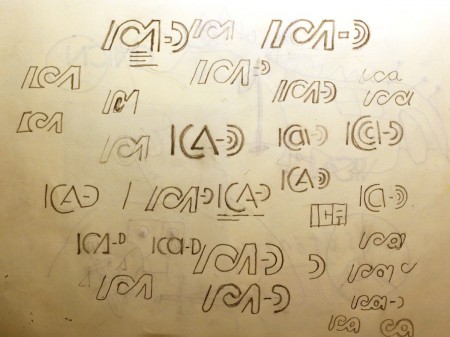 ICA-D ICA ICA-D
ICA ICA-D ica
ICA ICA-D ica
ICA ICA ICA-D ICa-D ICa-D
ICA-D
ICA-D ICA-D ICA-D ICA ICa-D
ICA-D ICa-D ICA-D ica
ica
ICA ICA-D ica-D
ica ca